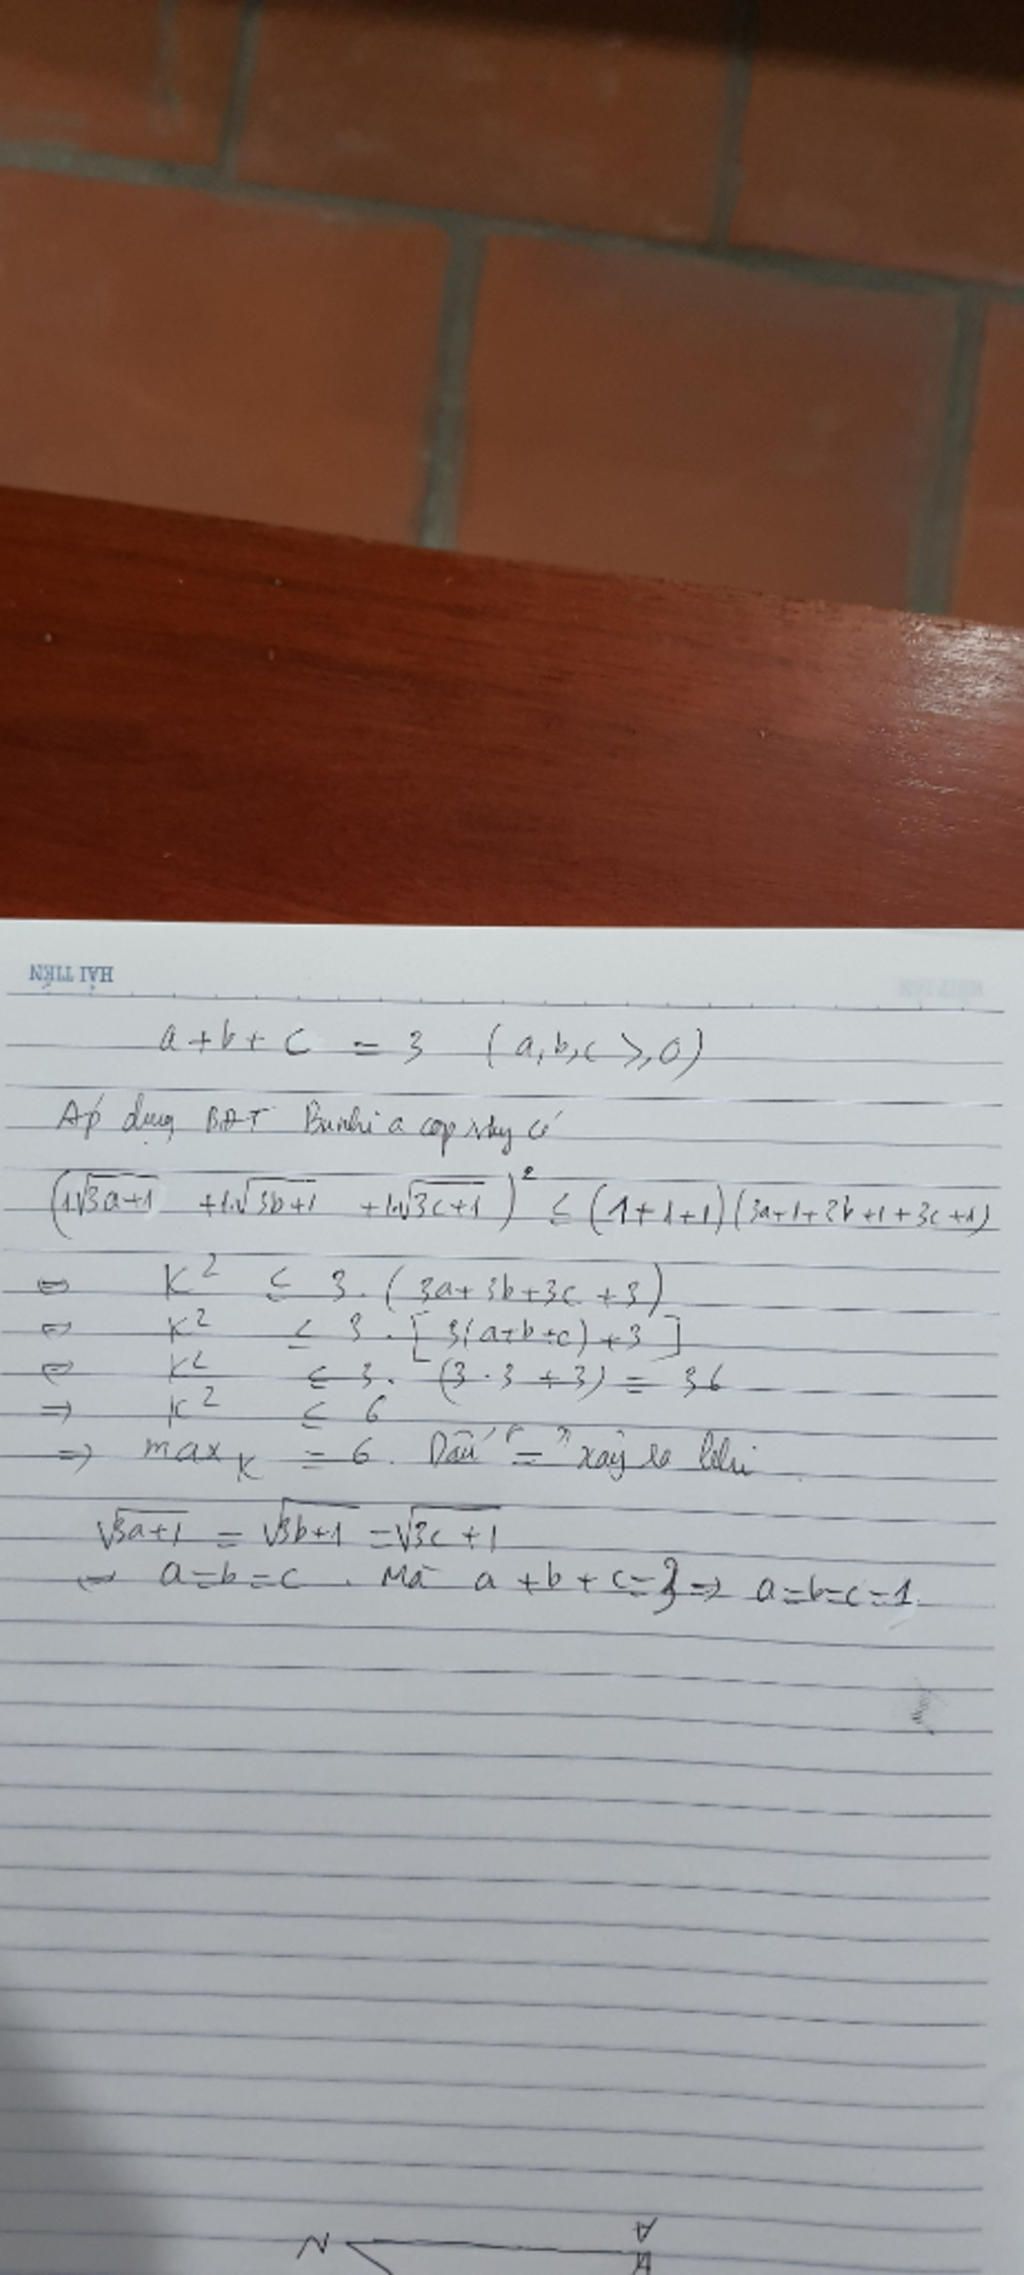 HẢI TIẾN
a+b+c = 3 (a,b,c ≥ 0)
Áp dụng BĐT Bunhiacopxky có
(1√3a+1 + 1.√3b+1 + 1.√3c+1)² ≤ (1+1+1)(3a+1+3b+1+3c+1)
⇔ K² ≤ 3.(3a+3b+3c+3)
⇔ K² ≤ 3.[3(a+b+c)+3]
⇔ K² ≤ 3.(3.3+3) = 36
⇒ K² ≤ 6
⇒ max K = 6. Dấu "=" xảy ra khi
√3a+1 = √3b+1 = √3c+1
⇔ a=b=c. Mà a+b+c=3 ⇒ a=b=c=1.
N A